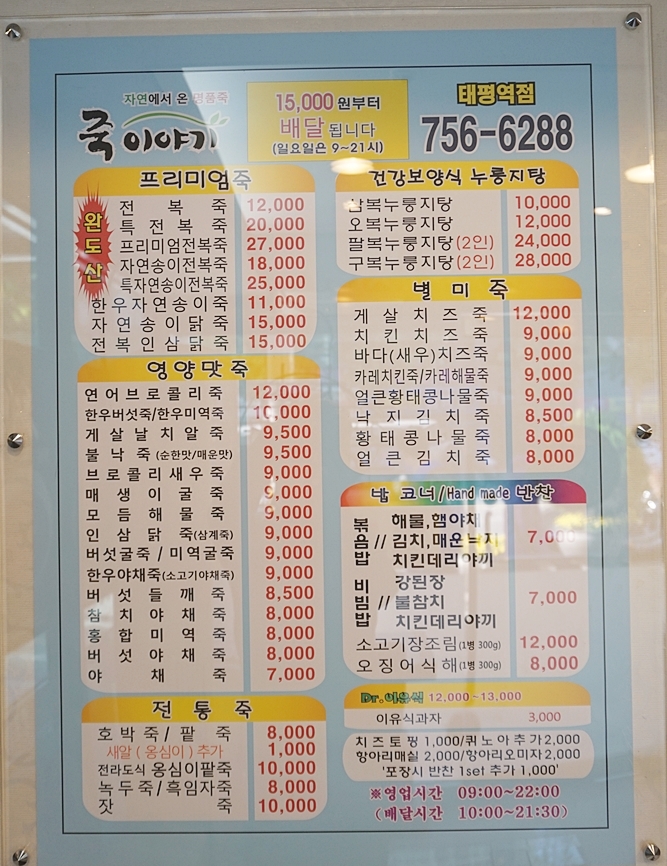 자연에서 온 명품죽
죽이야기
15,000원부터
배달됩니다
(일요일은 9~21시)
태평역점
756-6288
프리미엄죽
완도산
전복죽 12,000
특전복죽 20,000
프리미엄전복죽 27,000
자연송이전복죽 18,000
특자연송이전복죽 25,000
한우자연송이죽 11,000
자연송이닭죽 15,000
전복인삼닭죽 15,000
영양맛죽
연어브로콜리죽 12,000
한우버섯죽/한우미역죽 10,000
게살날치알죽 9,500
불낙죽(순한맛/매운맛) 9,500
브로콜리새우죽 9,000
매생이굴죽 9,000
모듬해물죽 9,000
인삼닭죽(삼계죽) 9,000
버섯굴죽/미역굴죽 9,000
한우야채죽(소고기야채죽) 9,000
버섯들깨죽 8,500
참치야채죽 8,000
홍합미역죽 8,000
버섯야채죽 8,000
야채죽 7,000
전통죽
호박죽/팥죽 8,000
새알(옹심이)추가 1,000
전라도식 옹심이팥죽 10,000
녹두죽/흑임자죽 8,000
잣죽 10,000
건강보양식 누룽지탕
삼복누룽지탕 10,000
오복누룽지탕 12,000
팔복누룽지탕(2인) 24,000
구복누룽지탕(2인) 28,000
별미죽
게살치즈죽 12,000
치킨치즈죽 9,000
바다(새우)치즈죽 9,000
카레치킨죽/카레해물죽 9,000
얼큰황태콩나물죽 9,000
낙지김치죽 8,500
황태콩나물죽 8,000
얼큰김치죽 8,000
밥 코너/Hand made 반찬
볶음밥 // 해물,햄야채
김치,매운낙지 7,000
치킨데리야끼
비빔밥 // 강된장
불참치 7,000
치킨데리야끼
소고기장조림(1병 300g) 12,000
오징어식해(1병 300g) 8,000
Dr.이유식 12,000~13,000
이유식과자 3,000
치즈토핑 1,000/퀴노아추가 2,000
항아리매실 2,000/항아리오미자 2,000
'포장시 반찬 1set 추가 1,000'
※영업시간 09:00~22:00
(배달시간 10:00~21:30)